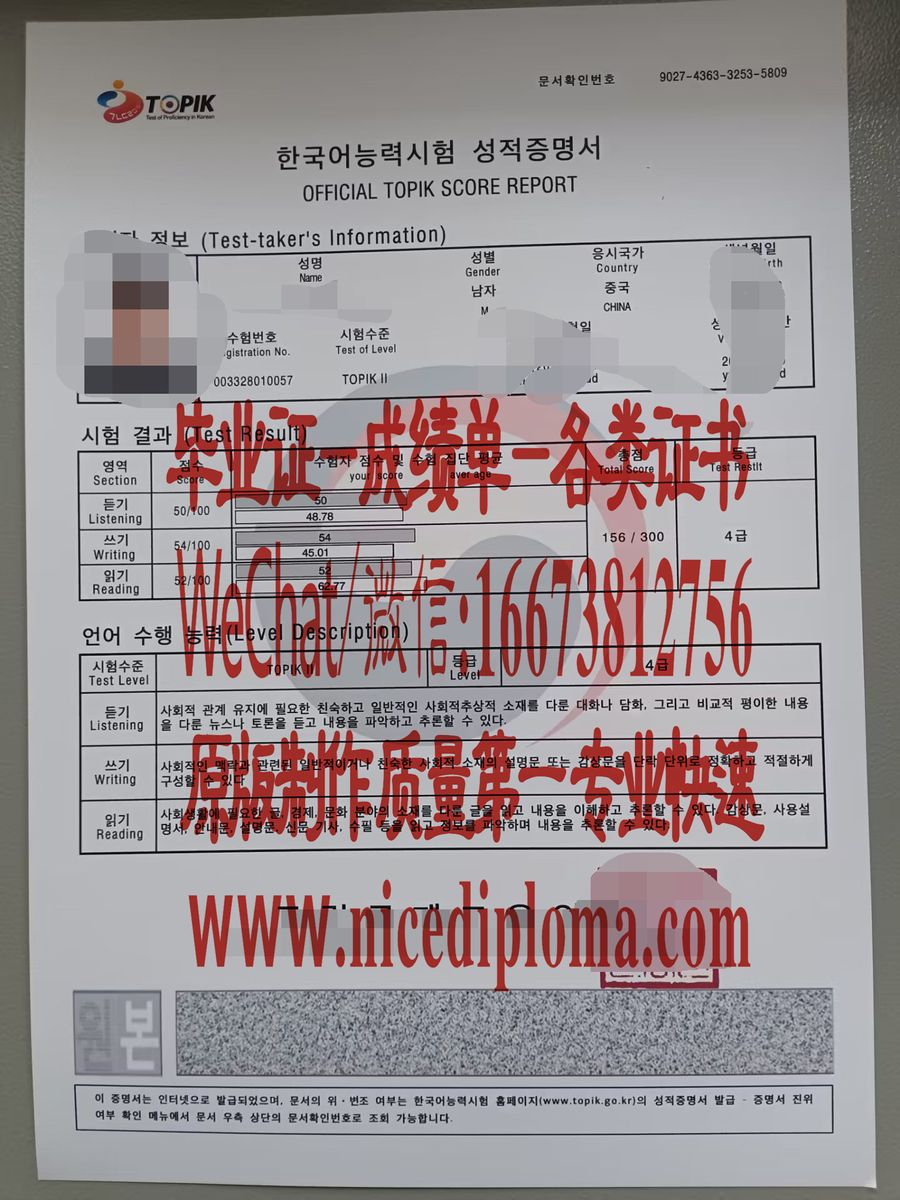 TOPIK
Test of Proficiency in Korean
문서확인번호 9027-4363-3253-5809
한국어능력시험 성적증명서
OFFICIAL TOPIK SCORE REPORT
정보 (Test-taker's Information)
성명 성별 응시국가
Name Gender Country
남자 중국
M CHINA
수험번호 시험수준
gistration No. Test of Level
003328010057 TOPIK II
시험 결과 (Test Result)
영역 점수 수험자 점수 및 수험 집단 평균 총점 등급
Section Score your score average Total Score Test Restlt
듣기 50/100 50
Listening 48.78
쓰기 54/100 54 156 / 300 4급
Writing 45.01
읽기 52/100 52
Reading 62.77
毕业证—成绩单—各类证书
WeChat/微信:16673812756
언어 수행 능력(Level Description)
시험수준 TOPIK II 등급 4급
Test Level Level
듣기 사회적 관계 유지에 필요한 친숙하고 일반적인 사회적추상적 소재를 다룬 대화나 담화, 그리고 비교적 평이한 내용
Listening 을 다룬 뉴스나 토론을 듣고 내용을 파악하고 추론할 수 있다.
쓰기 사회적인 맥락과 관련된 일반적이거나 친숙한 사회적 소재의 설명문 또는 감상문을 단락 단위로 정확하고 적절하게
Writing 구성할 수 있다
읽기 사회생활에 필요한 글, 경제, 문화 분야의 소재를 다룬 글을 읽고 내용을 이해하고 추론할 수 있다. 감상문, 사용설
Reading 명서, 안내문, 설명문, 신문 기사, 수필 등을 읽고 정보를 파악하며 내용을 추론할 수 있다
原版制作质量第一专业快速
www.nicediploma.com
원본
이 증명서는 인터넷으로 발급되었으며, 문서의 위·변조 여부는 한국어능력시험 홈페이지(www.topik.go.kr)의 성적증명서 발급 - 증명서 진위
여부 확인 메뉴에서 문서 우측 상단의 문서확인번호로 조회 가능합니다.